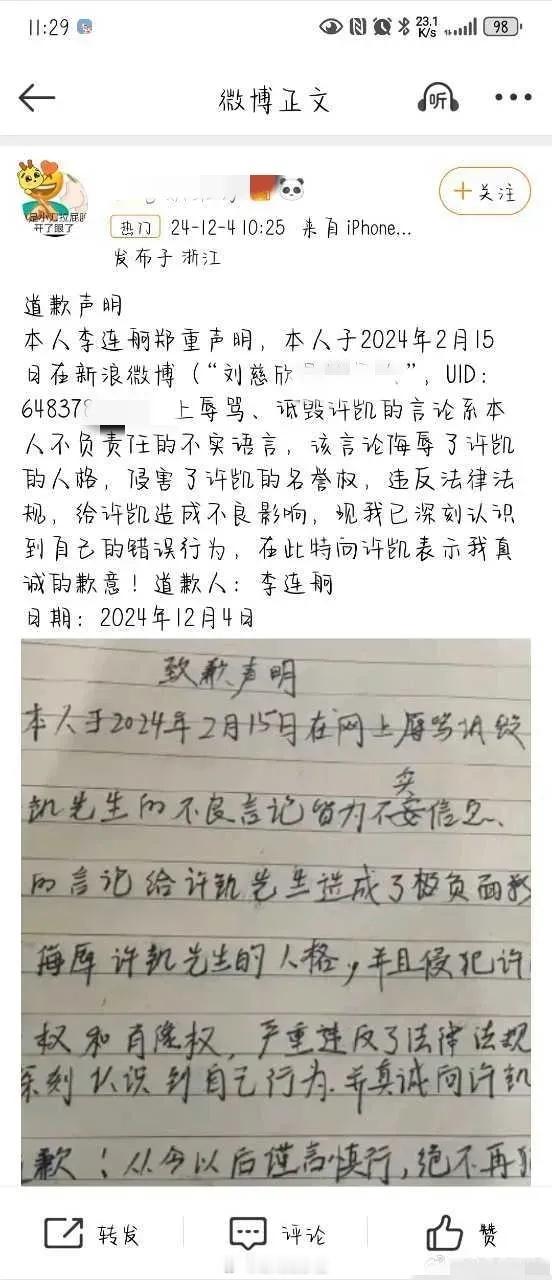 11:29
23.1
K/s
98
微博正文
听
开了眼了
热门 24-12-4 10:25 来自 iPhone...
+关注
发布于 浙江
道歉声明
本人李连舸郑重声明，本人于2024年2月15
日在新浪微博（“刘慈欣”，UID：
648378 上辱骂、诋毁许凯的言论系本
人不负责任的不实语言，该言论侮辱了许凯
的人格，侵害了许凯的名誉权，违反法律法
规，给许凯造成不良影响，现我已深刻认识
到自己的错误行为，在此特向许凯表示我真
诚的歉意！道歉人：李连舸
日期：2024年12月4日
致歉声明
本人于2024年2月15日在网上辱骂诋毁
实
凯先生的不良言论皆为不信息、
的言论给许凯先生造成了极负面影
侮辱许凯先生的人格，并且侵犯许
权和肖像权，严重违反了法律法规
深刻认识到自己行为.并真诚向许凯
歉！从今以后谨言慎行，绝不再犯
转发
评论
赞